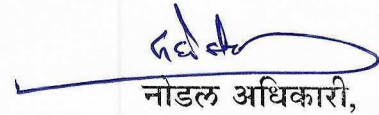 नोडल अधिकारी,